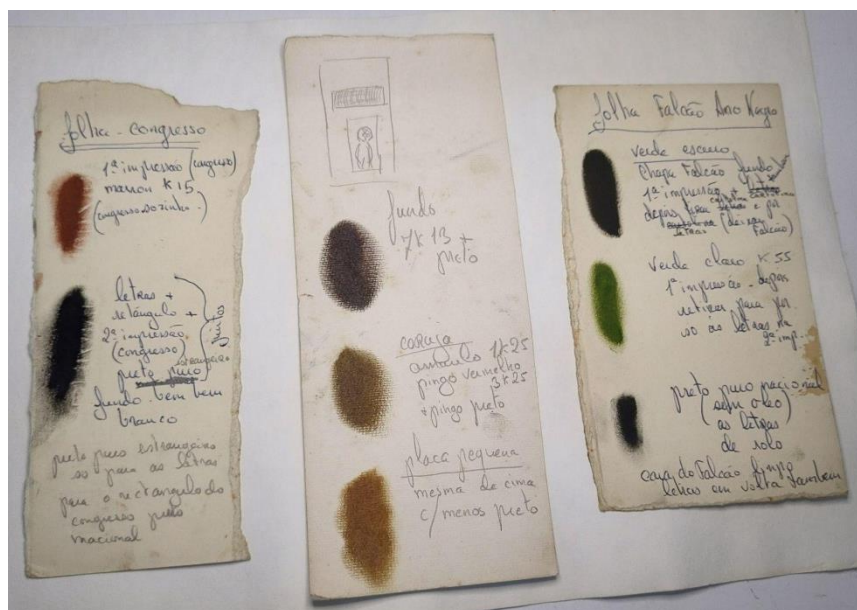 folha - congresso
1ª impressão (congresso)
marron K15
(congresso sozinho.)
letras +
retângulo +
2ª impressão
(congresso)
estrangeiro
preto puro
juntos
fundo bem bem
branco
preto puro estrangeiro
so para as letras
para o rectangulo do
congresso preto
nacional
fundo
7K13 +
preto
coruja
amarelo 1K25
pingo vermelho
3K25
+ pingo preto
placa pequena
mesma de cima
c/ menos preto
folha Falcão Ano Negro
verde escuro
Chapa Falcão fundo
1ª impressão +
depois tirar e por
letras (deixar
Falcão)
verde claro K55
1ª impressão - depois
retirar para por
so as letras na
2ª imp.
preto puro nacional
(sem oleo)
as letras
de solo
cara do Falcão limpo
letras em volta tambem